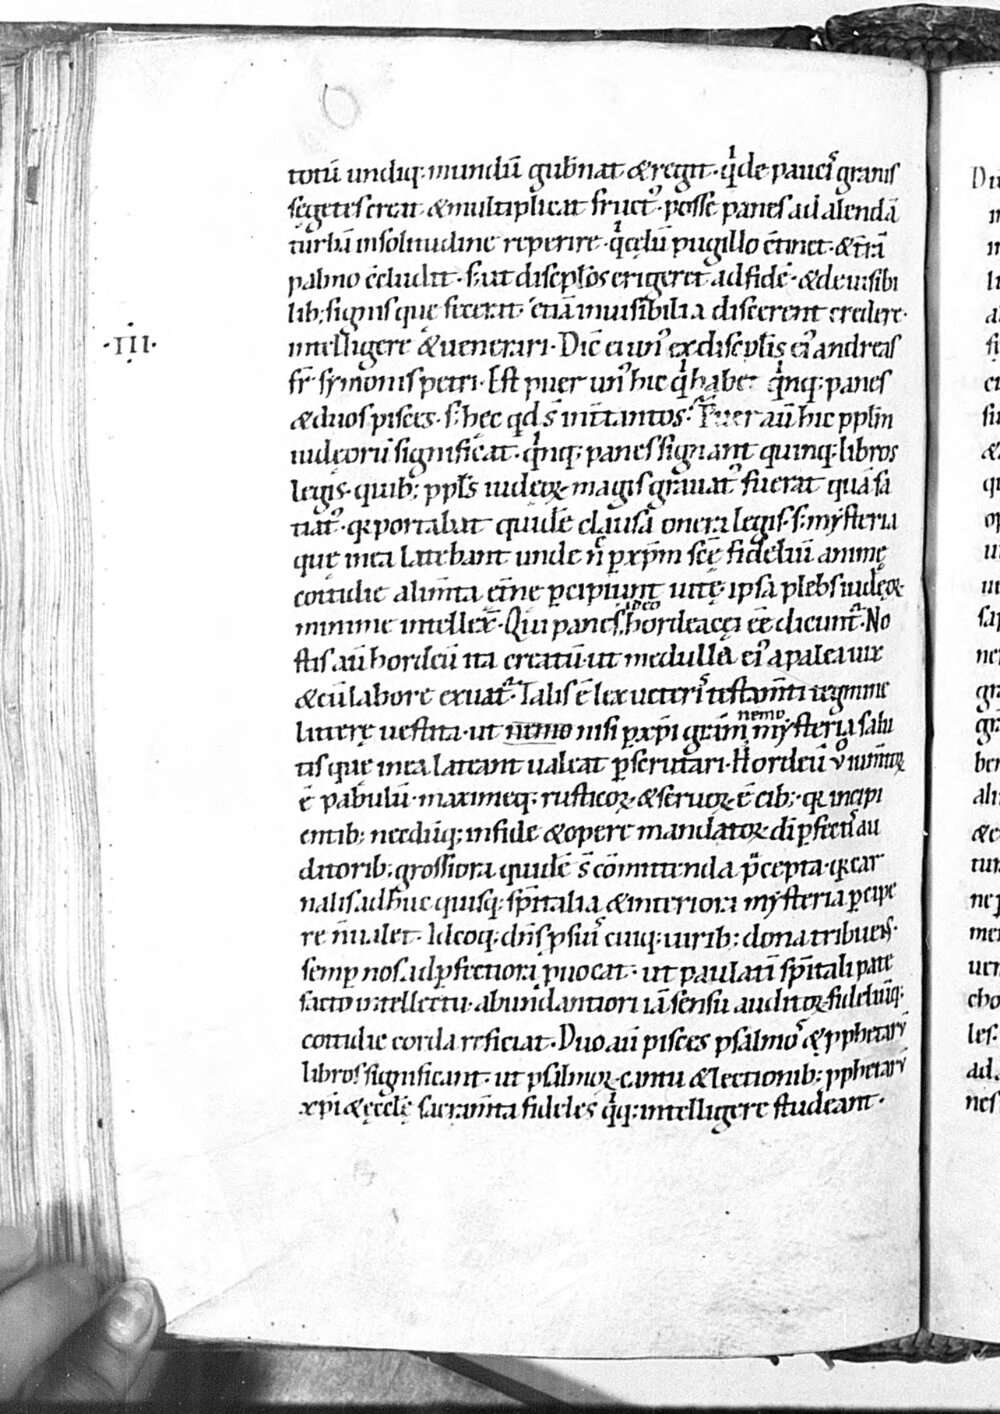 totū undiq; mundū gub̄nat & regit· q̇de paucis granis
segetes creat & multiplicat fruct᷒· posse panes ad alendā
turbā insolitudine reperire· q̇ celū pugillo c̄tinet· & t̄rā
palmo c̄cludit· s; ut discip̄los erigeret ad fidē· & de uisibi
lib; signis que fecerat etiā inuisibilia discerent credere·
·III· intelligere & uenerari· Dic̄ ei un᷒ ex discip̄lis ei᷒ andreas
fr̄ symonis petri· Est puer un᷒ hic q̇ habet q̇nq; panes
& duos pisces· s; hec qd s̄ int̄ tantos· Puer aū hic pp̄lm
iudeorū significat· q̇nq; panes signant quinq; libros
legis· quib; pp̄ls iudeoꝝ magis grauat᷒ fuerat quā sa
tiat᷒· qꝛ portabat quidē clausa onera legis· s; mysteria
quę in ea latebant unde n̄ p̄ xp̄m sc̄ę fidelium animę
cottidie alim̄ta et̄ne percipiunt uitę· ipsa plebs iudęoꝝ
minime intellex̄· Qui panes ideo hordeacei eē dicunt᷒· No
stis aū hordeū ita creatū· ut medulla ei᷒ a palea uix
& cū labore exuat᷒· Talis ē lex ueteris testam̄ti tegmine
litterę uestita· ut nemo nisi p̱ xp̄i gr̄am nemo mysteria salu
tis que in ea lateant ualeat p̱scrutari· Hordeū v᷒ iumentoꝝ
ē pabulū· maximeq; rusticoꝝ & seruoꝝ ē cib;· qꝛ incipi
entib; necdūq; in fide & opere mandatoꝝ dī p̱fectis au
ditorib; grossiora quidē s̄ cōmittenda p̄cepta· qꝛ car
nalis adhuc quisq; sp̄italia & interiora mysteria p̱cipe
re n̄ ualet· Idcoq; dn̄s p̱ suis cuiq; uirib; dona tribuens·
semp̱ nos ad p̱fectiora p̱uocat· ut paulati sp̄itali pate
facto intellectu· abundantiori iā sensu auditoꝝ fideliūq;
cottidie corda reficiat· Duo aū pisces psalmoꝝ & p̱phetarū
libros significant· ut psalmoꝝ cantu & lectionib; p̱phetarū
xp̄i & ęcclę̄ sacram̄ta fideles q̇q; intelligere studeant·